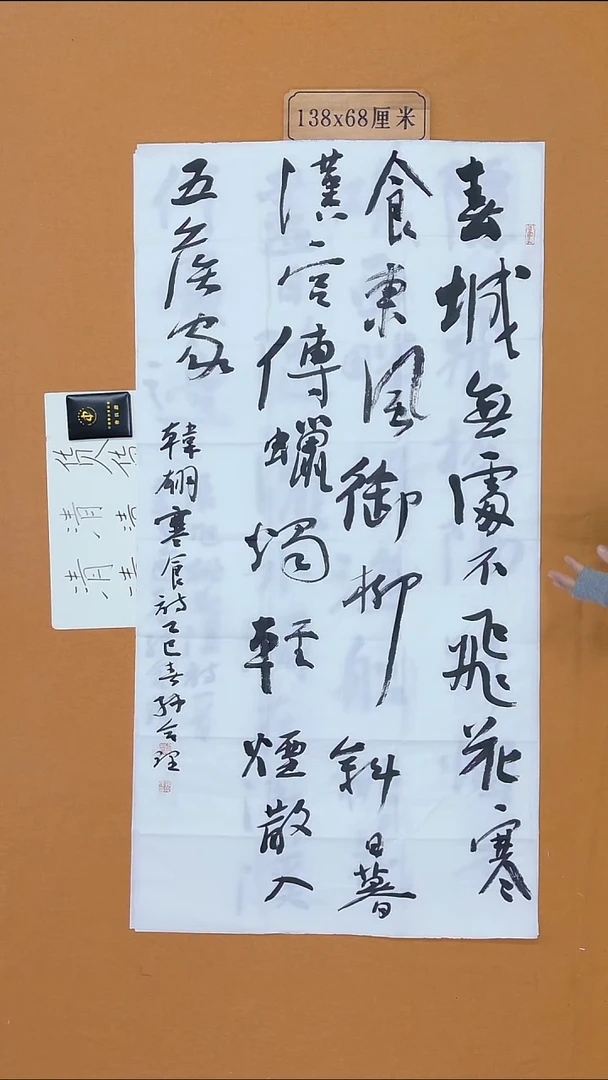 138x68厘米
春城無處不飛花寒
食東風御柳斜日暮
漢宮傳蠟燭輕煙散入
五侯家
韓翃寒食詩乙巳春
清
清